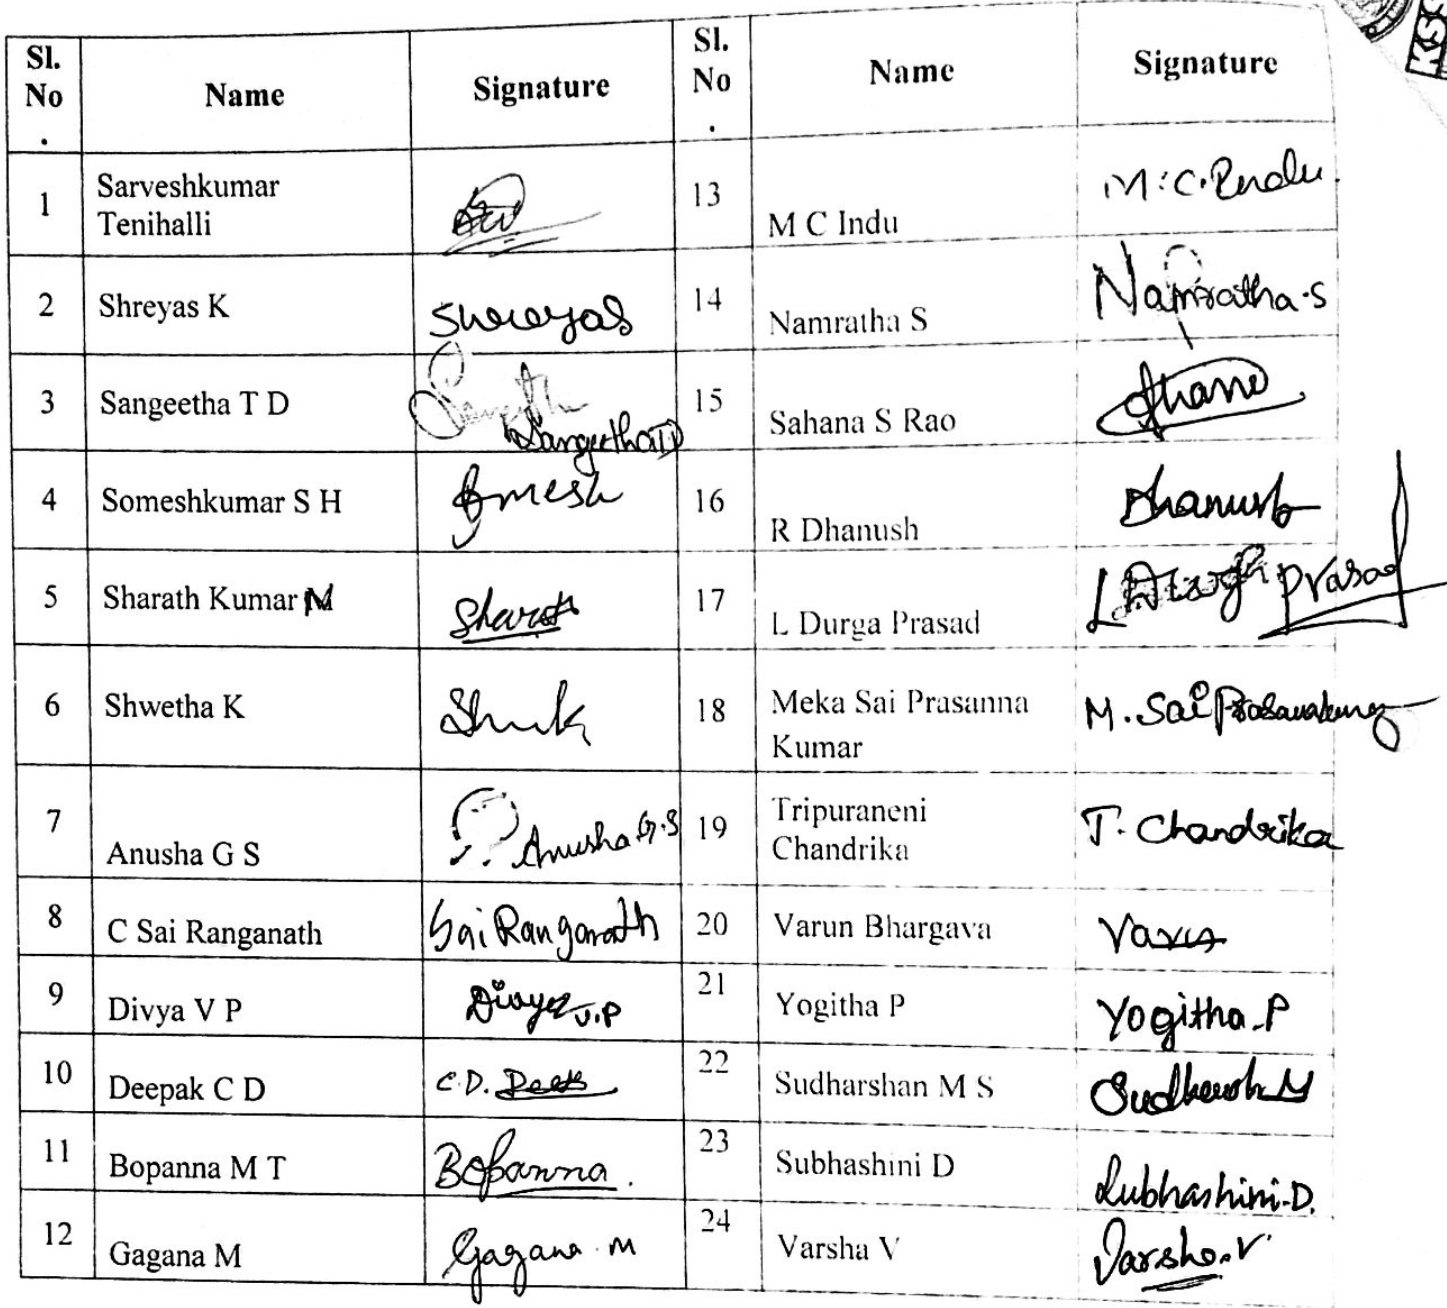 Sl. No . Name Signature Sl. No . Name Signature
1 Sarveshkumar Tenihalli 13 M C Indu M.C.Indu.
2 Shreyas K Shreyas 14 Namratha S Namratha.S
3 Sangeetha T D Sangeetha TD 15 Sahana S Rao
4 Someshkumar S H Somesh 16 R Dhanush Dhanush
5 Sharath Kumar M Sharath 17 L Durga Prasad L Durga Prasad
6 Shwetha K 18 Meka Sai Prasanna Kumar M. Sai Prasannakumar
7 Anusha G S Anusha G.S 19 Tripuraneni Chandrika T. Chandrika
8 C Sai Ranganath Sai Ranganath 20 Varun Bhargava Varun
9 Divya V P Divya V.P 21 Yogitha P Yogitha.P
10 Deepak C D C.D. Deepak 22 Sudharshan M S
11 Bopanna M T Bopanna. 23 Subhashini D Subhashini.D.
12 Gagana M Gagana M 24 Varsha V Varsha.V